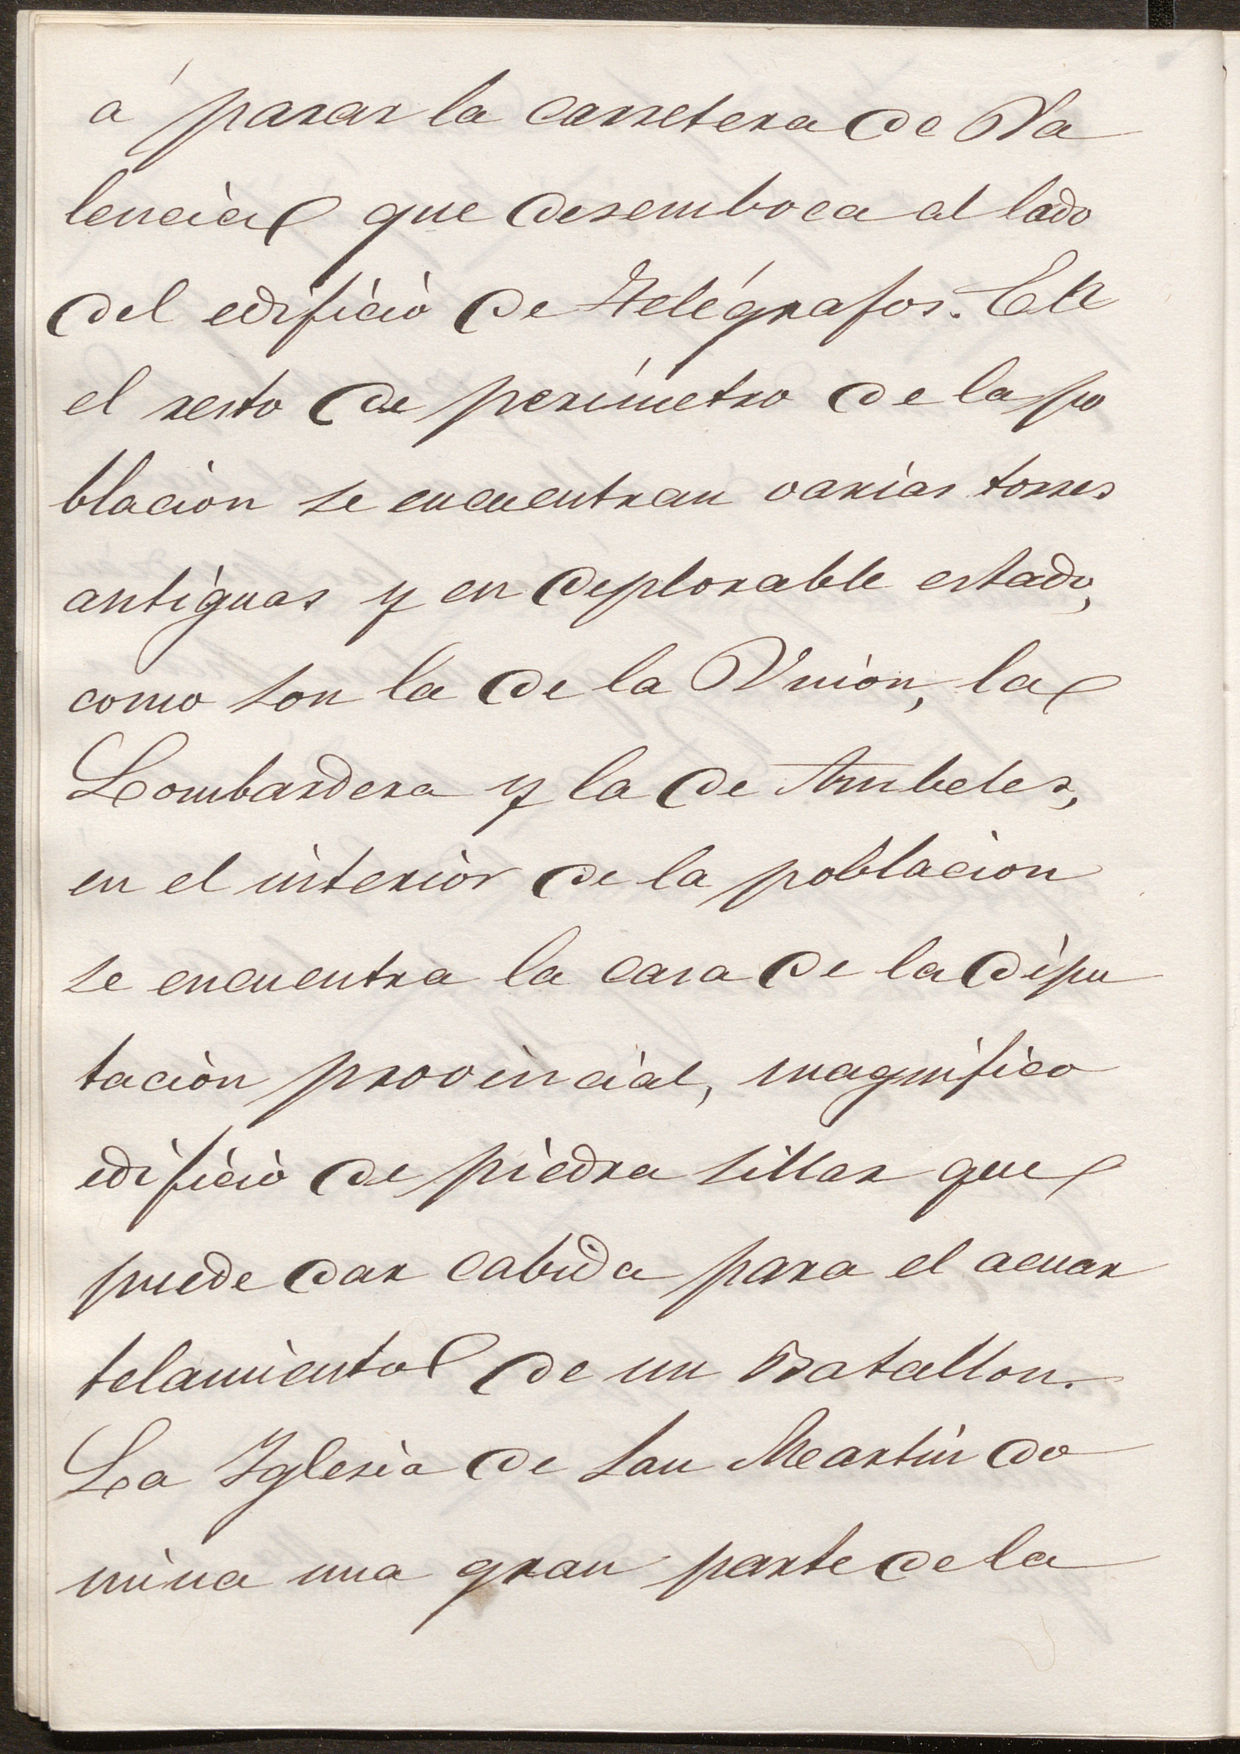 á parar la carretera de Va
lencia que desemboca al lado
del edificio de Telégrafos. En
el resto de perímetro de la po
blacion se encuentran varias torres
antiguas y en deplorable estado,
como son la de la Union, la
Lombardera y la de Ambeles,
en el interior de la poblacion
se encuentra la casa de la dipu
tación provincial, magnifico
edificio de piedra sillar que
puede dar cabida para el acuar
telamiento de un Batallon.
La Iglesia de San Martin do
mina una gran parte de la